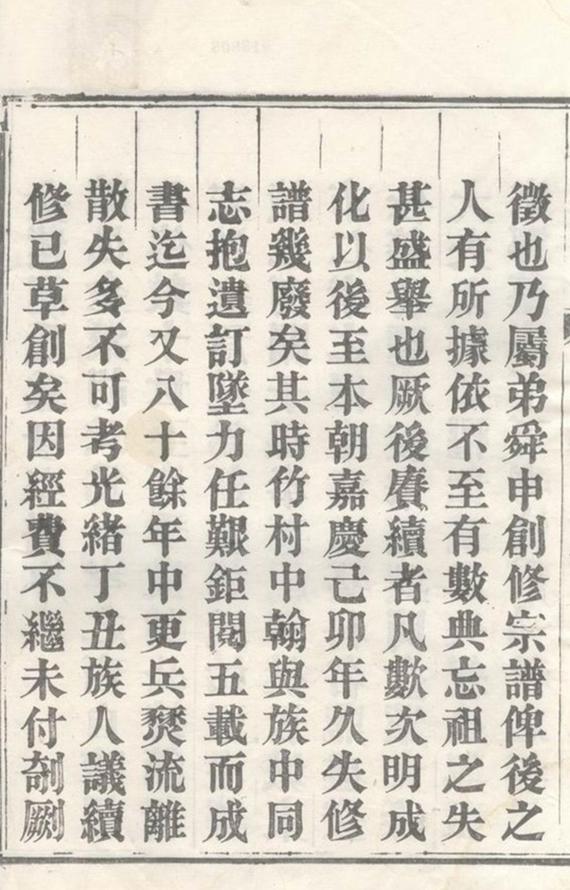 徵也乃屬弟舜申創修宗譜俾後之
人有所據依不至有數典忘祖之失
甚盛舉也厥後賡續者凡數次明成
化以後至本朝嘉慶己卯年久失修
譜幾廢矣其時竹村中翰與族中同
志抱遺訂墜力任艱鉅閱五載而成
書迄今又八十餘年中更兵燹流離
散失多不可考光緒丁丑族人議續
修已草創矣因經費不繼未付剞劂